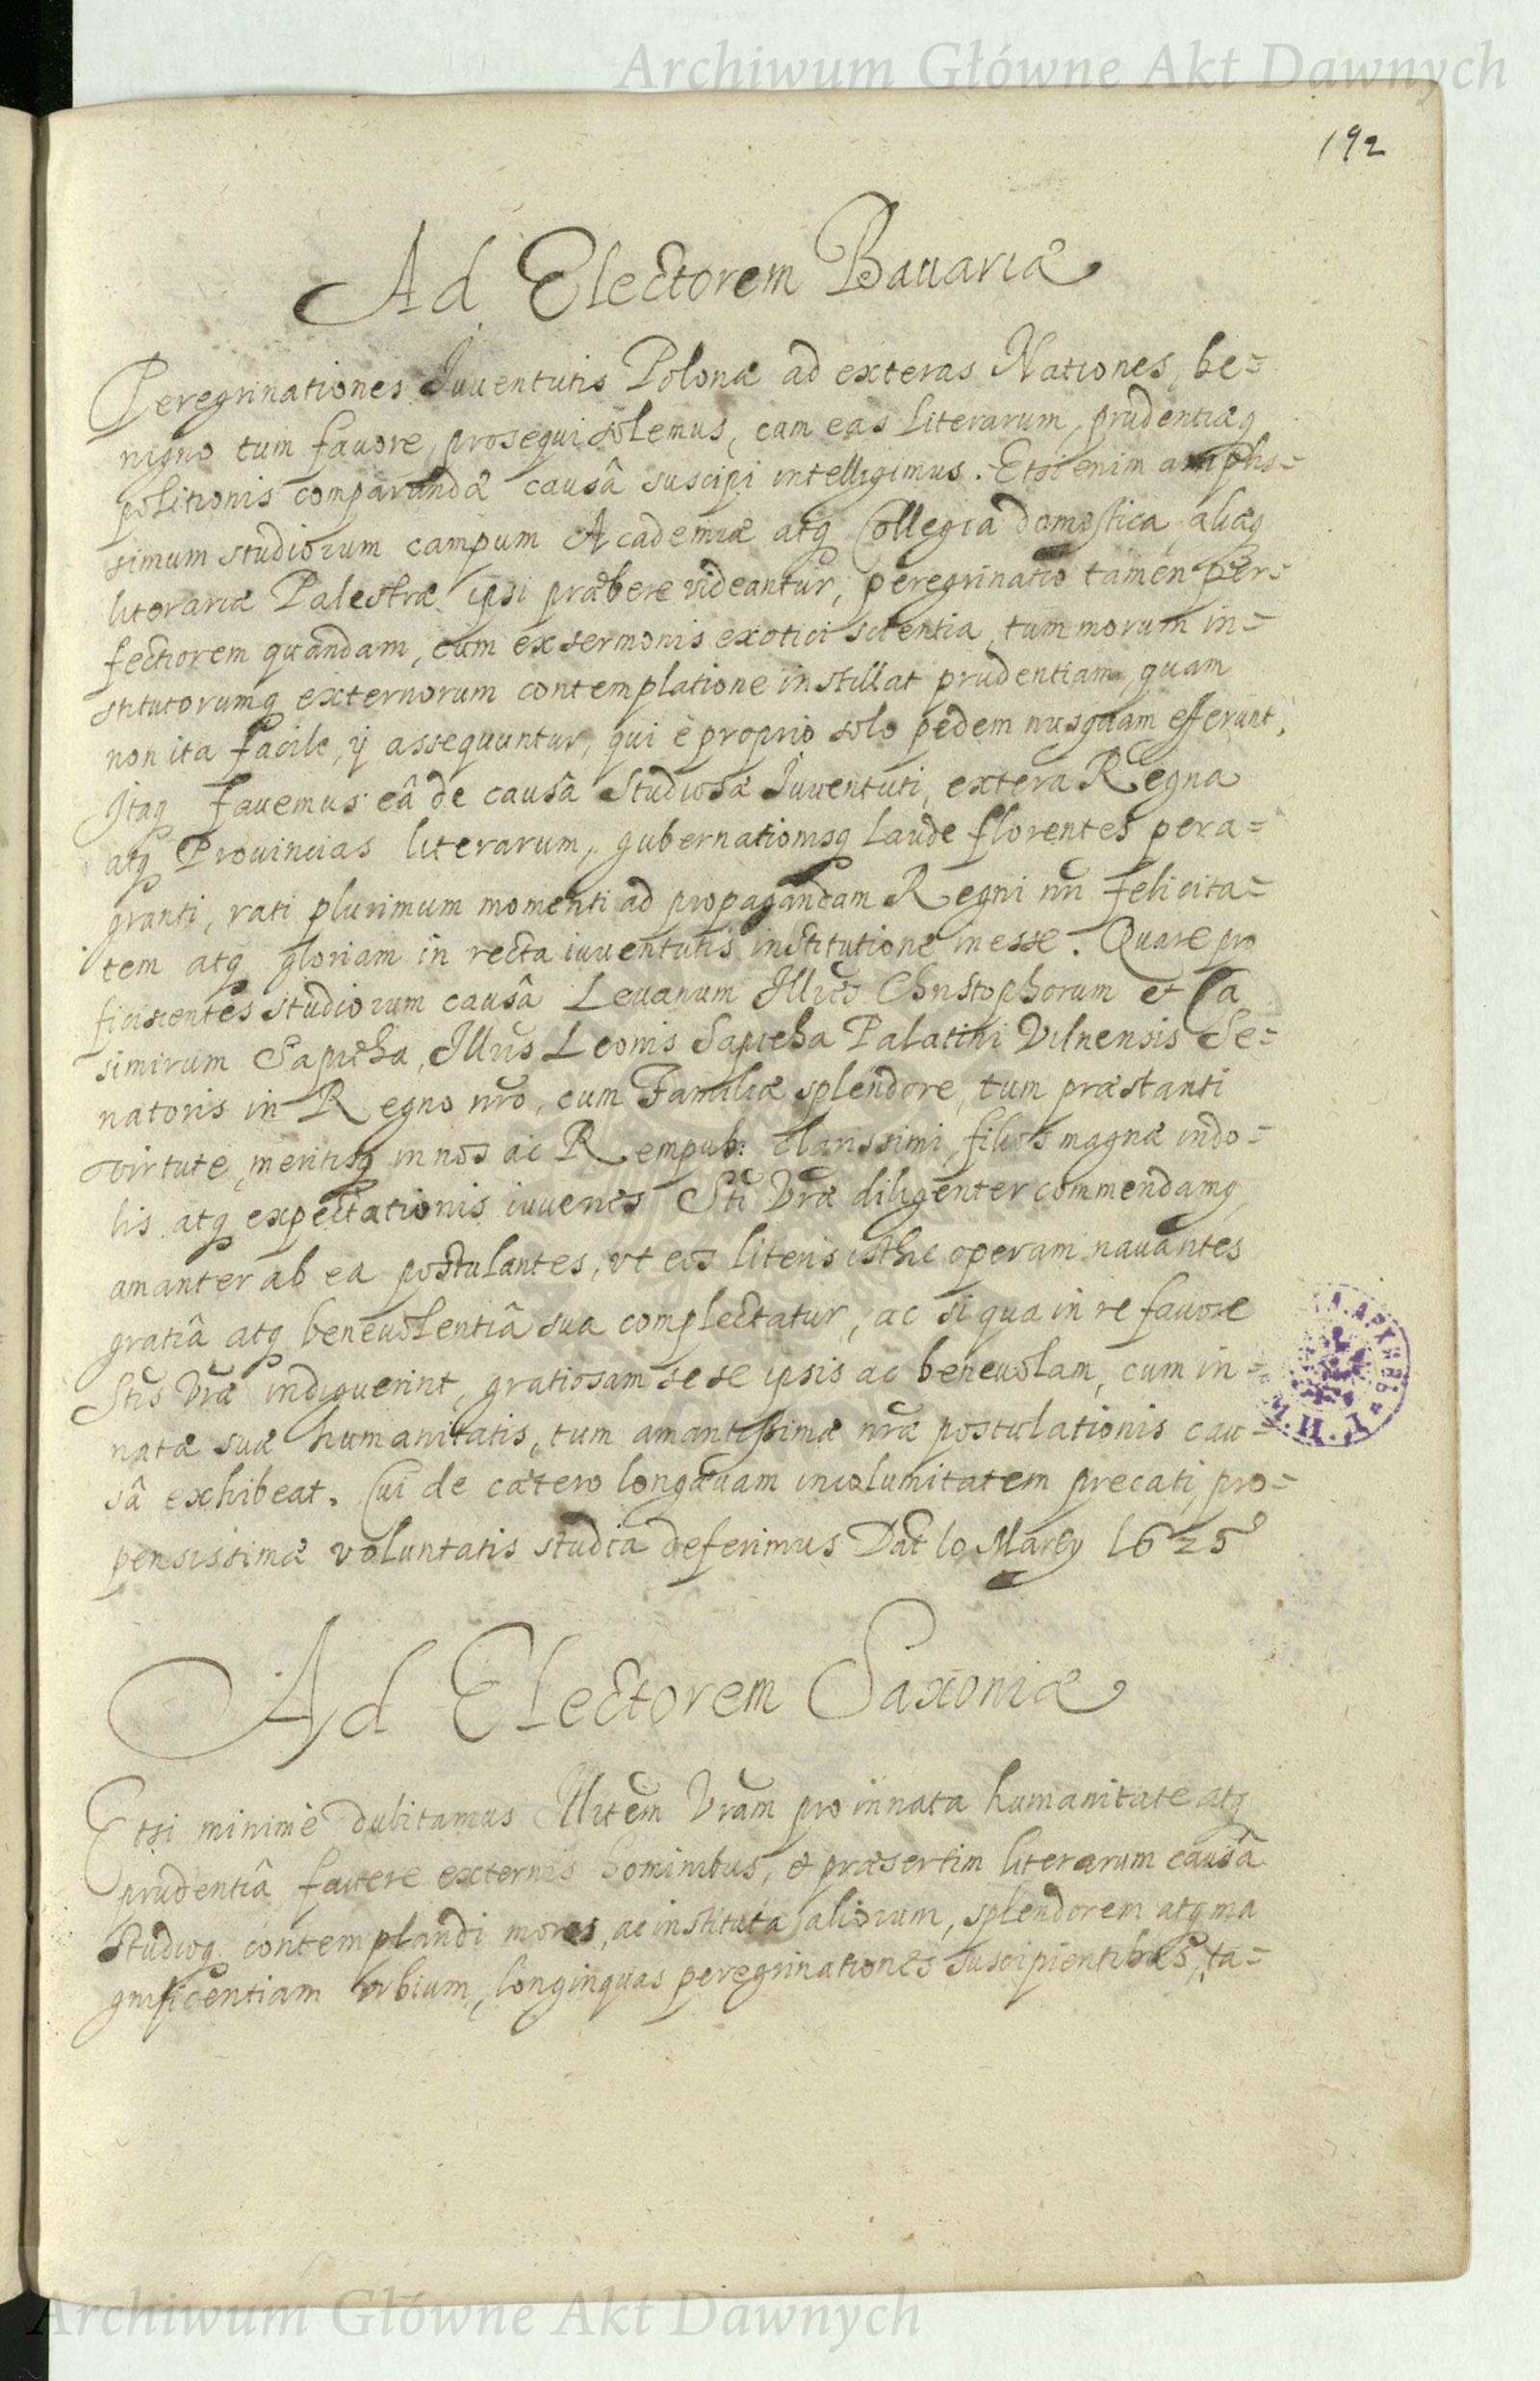 Archiwum Główne Akt Dawnych
192
Ad Electorem Bauariæ
Peregrinationes Iuuentutis Polonæ ad exteras Nationes, be=
nigno tum fauore, prosequi solemus, cum eas literarum, prudentiæq
politionis comparandæ causâ suscipi intelligimus. Etsi enim amplis=
simum studiorum campum Academiæ atq Collegia domestica, aliæq
literariæ Palestræ ipsi præbere videantur, peregrinatio tamen per=
fectiorem quandam, cum ex sermonis exotici scientia, tum morum in=
stitutorumq externorum contemplatione instillat prudentiam, quam
non ita facile, ij assequuntur, qui è proprio solo pedem nusquam efferunt,
Itaq fauemus eâ de causâ studiosæ Iuuentuti, extera Regna
atq Prouincias literarum, gubernationisq laude florentes pera=
granti, rati plurimum momenti ad propagandam Regni nri felicita=
tem atq gloriam in recta iuuentutis institutione inesse. Quare pro
ficiscentes studiorum causâ Leuanum Illres Christophorum et Ca
simirum Sapieha, Illris Leonis Sapieha Palatini Vilnensis Se=
natoris in Regno nro, cum Familiæ splendore, tum præstanti
virtute, meritisq in nos ac Rempub: clarissimi, filios magnæ indo=
lis atq expectationis iuuenes Sti Vræ diligenter commendamq
amanter ab ea postulantes, vt eos literis isthic operam nauantes
gratiâ atq beneuolentiâ sua complectatur, ac si qua in re fauore
Stis Vræ indiguerint, gratiosam sese ipsis ac beneuolam, cum in=
natæ suæ humanitatis, tum amantissimæ nræ postulationis cau=
sâ exhibeat. Cui de cætero longæuam incolumitatem precati, pro=
pensissimæ voluntatis studia deferimus Dat 10 Marty 1625
Ad Electorem Saxoniæ
Etsi minimè dubitamus Illitem Vram pro innata humanitate atq
prudentiâ fauere externis hominibus, et præsertim literarum causâ
studioq contemplandi mores, ac instituta aliorum, splendorem atq ma
gnificentiam vrbium, longinquas peregrinationes suscipientibus, ta=
Archiwum Główne Akt Dawnych